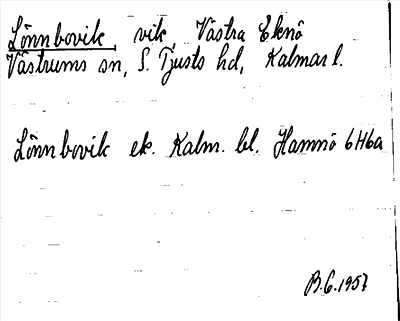 Lönnbovik, vik, Västra Eknö
Västrums sn, S. Tjusts hd, Kalmar l.
Lönnbovik ek. Kalm. bl. Hamnö 6H6a
B.G. 1957